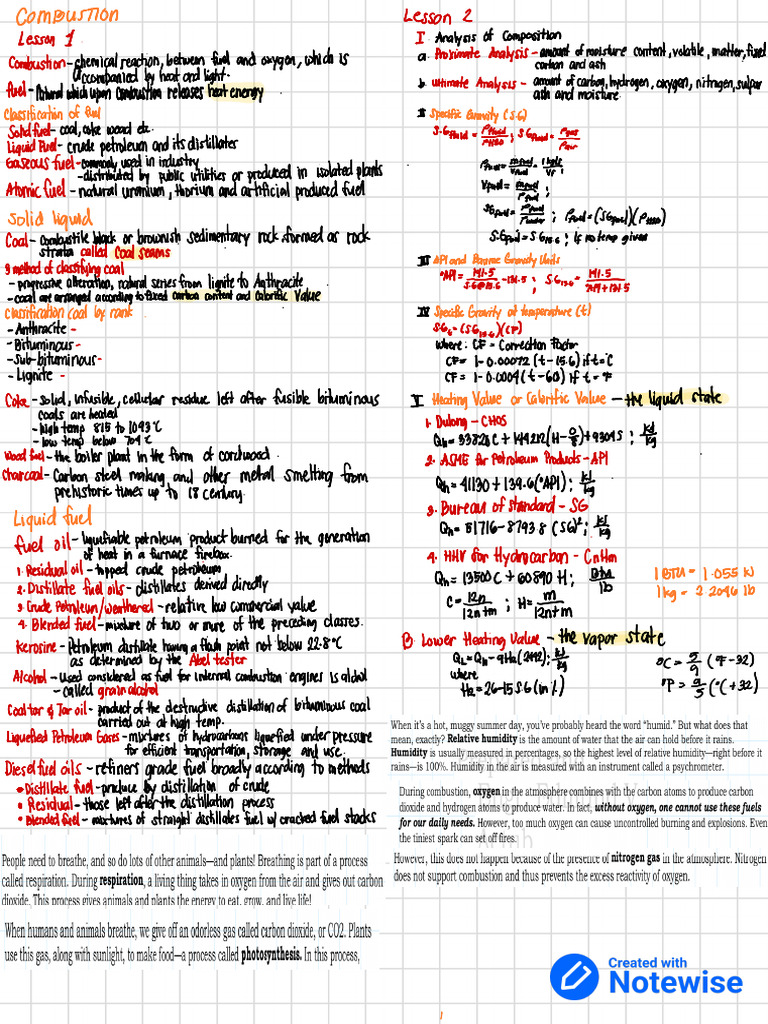 Combustion
Lesson 1
Combustion - chemical reaction, between fuel and oxygen, which is
accompanied by heat and light.
Fuel - Natural which upon combustion releases heat energy
Classification of Fuel
Solid fuel - coal, coke wood etc.
Liquid Fuel - crude petroleum and its distillates
Gaseous fuel - commonly used in industry
- distributed by public utilities or produced in isolated plants
Atomic fuel - natural uranium, thorium and artificial produced fuel
Solid liquid
Coal - Combustile black or brownish sedimentary rock formed as rock
strata called Coal seams
3 method of classifying coal
- progressive alteration, natural series from lignite to Anthracite
- coal are arranged according to fixed carbon content and Calorific Value
Classification coal by rank
- Anthracite -
- Bituminous -
- Sub-bituminous -
- Lignite -
Coke - solid, infusible, cellular residue left after fusible bituminous
coals are heated
- high temp 815 to 1093°C
- low temp below 704°C
Wood fuel - the boiler plant in the form of cordwood.
Charcoal - Carbon steel making and other metal smelting from
prehistoric times up to 18 century.
Liquid fuel
fuel oil - liquefiable petroleum product burned for the generation
of heat in a furnace firebox.
1. Residual oil - topped crude petroleum
2. Distilate fuel oils - distillates derived directly
3. Crude Petroleum/weathered - relative low commercial value
4. Blended fuel - mixture of two or more of the preceding classes.
Kerosine - Petroleum distillate having a flash point not below 22.8°C
as determined by the Abel tester
Alcohol - used considered as fuel for internal combustion engines is aldol
- called grain alcohol
Coal tar & Tar oil - product of the destructive distillation of bituminous coal
carried out at high temp.
Liquefied Petroleum Gases - mixtures of hydrocarbons liquefied under pressure
for efficient transportation, storage and use.
Diesel fuel oils - refiners grade fuel broadly according to methods
• Distillate fuel - produce by distillation of crude
• Residual - those left after the distillation process
• Blended fuel - mixtures of straight distillates fuel w/ cracked fuel stocks
People need to breathe, and so do lots of other animals—and plants! Breathing is part of a process
called respiration. During respiration, a living thing takes in oxygen from the air and gives out carbon
dioxide. This process gives animals and plants the energy to eat, grow, and live life!
When humans and animals breathe, we give off an odorless gas called carbon dioxide, or CO2. Plants
use this gas, along with sunlight, to make food—a process called photosynthesis. In this process,
Lesson 2
I Analysis of Composition
a. Proximate Analysis - amount of moisture content, volatile, matter, fixed
carbon and ash
b. Ultimate Analysis - amount of carbon, hydrogen, oxygen, nitrogen, sulfur
ash and moisture
II Specific Gravity (S.G)
S.G fluid = ρfluid/ρH2O ; S.G fuel = ρgas/ρair
ρfuel = mfuel/Vfuel = 1kg/s/Vf ;
Vfuel = mfuel/ρfuel ;
SGfuel = ρfuel/ρwater ; ρfuel = (SGfuel)(ρH2O)
S.G fuel = SG15.6 ; if no temp given
III API and Baume Gravity Units
°API = 141.5/SG@15.6 - 131.5 ; SG15.6 = 141.5/°API + 131.5
IV Specific Gravity at temperature (t)
SGt = (SG15.6)(CF)
where: CF = Correction Factor
CF = 1-0.00072 (t-15.6) if t=°C
CF = 1-0.0004 (t-60) if t=°F
V Heating Value or Calorific Value - the liquid state
1. Dulong - CHOS
Qh = 33820 C + 144212 (H - O/8) + 9304 S ; kJ/kg
2. ASME for Petroleum Products - API
Qh = 41130 + 139.6 (°API) ; kJ/kg
3. Bureau of Standard - SG
Qh = 51716 - 8793.8 (SG)² ; kJ/kg
4. HHV for Hydrocarbon - CnHm
Qh = 13500 C + 60890 H ; Btu/lb
C = 12n/12n+m ; H = m/12n+m
1 BTU = 1.055 kJ
1 kg = 2.2046 lb
B. Lower Heating Value - the vapor state
QL = Qh - 9H2 (2442) ; kJ/kg
where
H2 = 26-15 S.G (in %)
°C = 5/9 (°F-32)
°F = 9/5 (°C+32)
When it's a hot, muggy summer day, you've probably heard the word "humid." But what does that
mean, exactly? Relative humidity is the amount of water that the air can hold before it rains.
Humidity is usually measured in percentages, so the highest level of relative humidity—right before it
rains—is 100%. Humidity in the air is measured with an instrument called a psychrometer.
During combustion, oxygen in the atmosphere combines with the carbon atoms to produce carbon
dioxide and hydrogen atoms to produce water. In fact, without oxygen, one cannot use these fuels
for our daily needs. However, too much oxygen can cause uncontrolled burning and explosions. Even
the tiniest spark can set off fires.
However, this does not happen because of the presence of nitrogen gas in the atmosphere. Nitrogen
does not support combustion and thus prevents the excess reactivity of oxygen.
Created with
Notewise
1